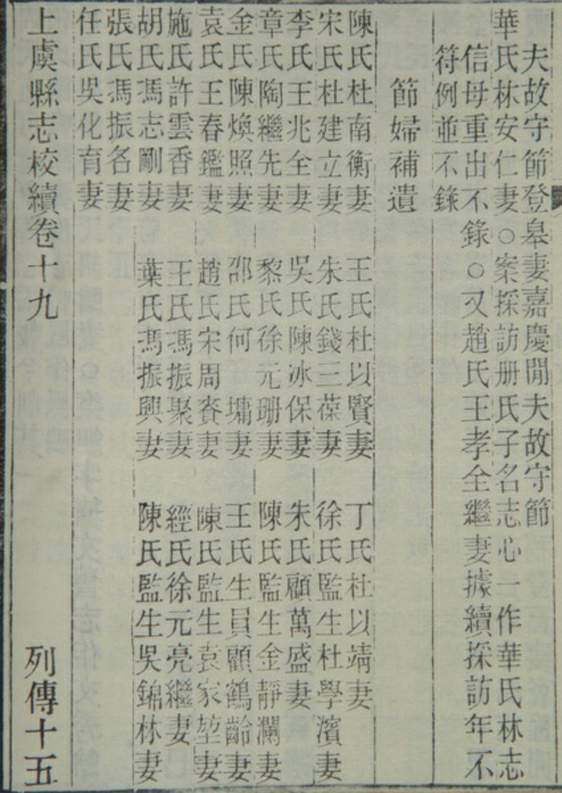 夫故守節登皋妻嘉慶閒夫故守節
華氏林安仁妻○案採訪册氏子名志心一作華氏林志
信母重出不錄○又趙氏王孝全繼妻據續採訪年不
符例並不錄
節婦補遺
陳氏杜南衡妻 王氏杜以賢妻 丁氏杜以靖妻
宋氏杜建立妻 朱氏錢三葆妻 徐氏監生杜學濱妻
李氏王兆全妻 吳氏陳冰保妻 朱氏顧萬盛妻
章氏陶繼先妻 黎氏徐元珊妻 陳氏監生金靜瀾妻
金氏陳煥照妻 邵氏何墉妻 王氏生員顧鶴齡妻
袁氏王春鑑妻 趙氏宋周賚妻 陳氏監生袁家堃妻
施氏許雲香妻 王氏馮振聚妻 經氏徐元亮繼妻
胡氏馮志剛妻 葉氏馮振興妻 陳氏監生吳錦林妻
張氏馮振名妻
任氏吳化育妻
上虞縣志校續卷十九 列傳十五